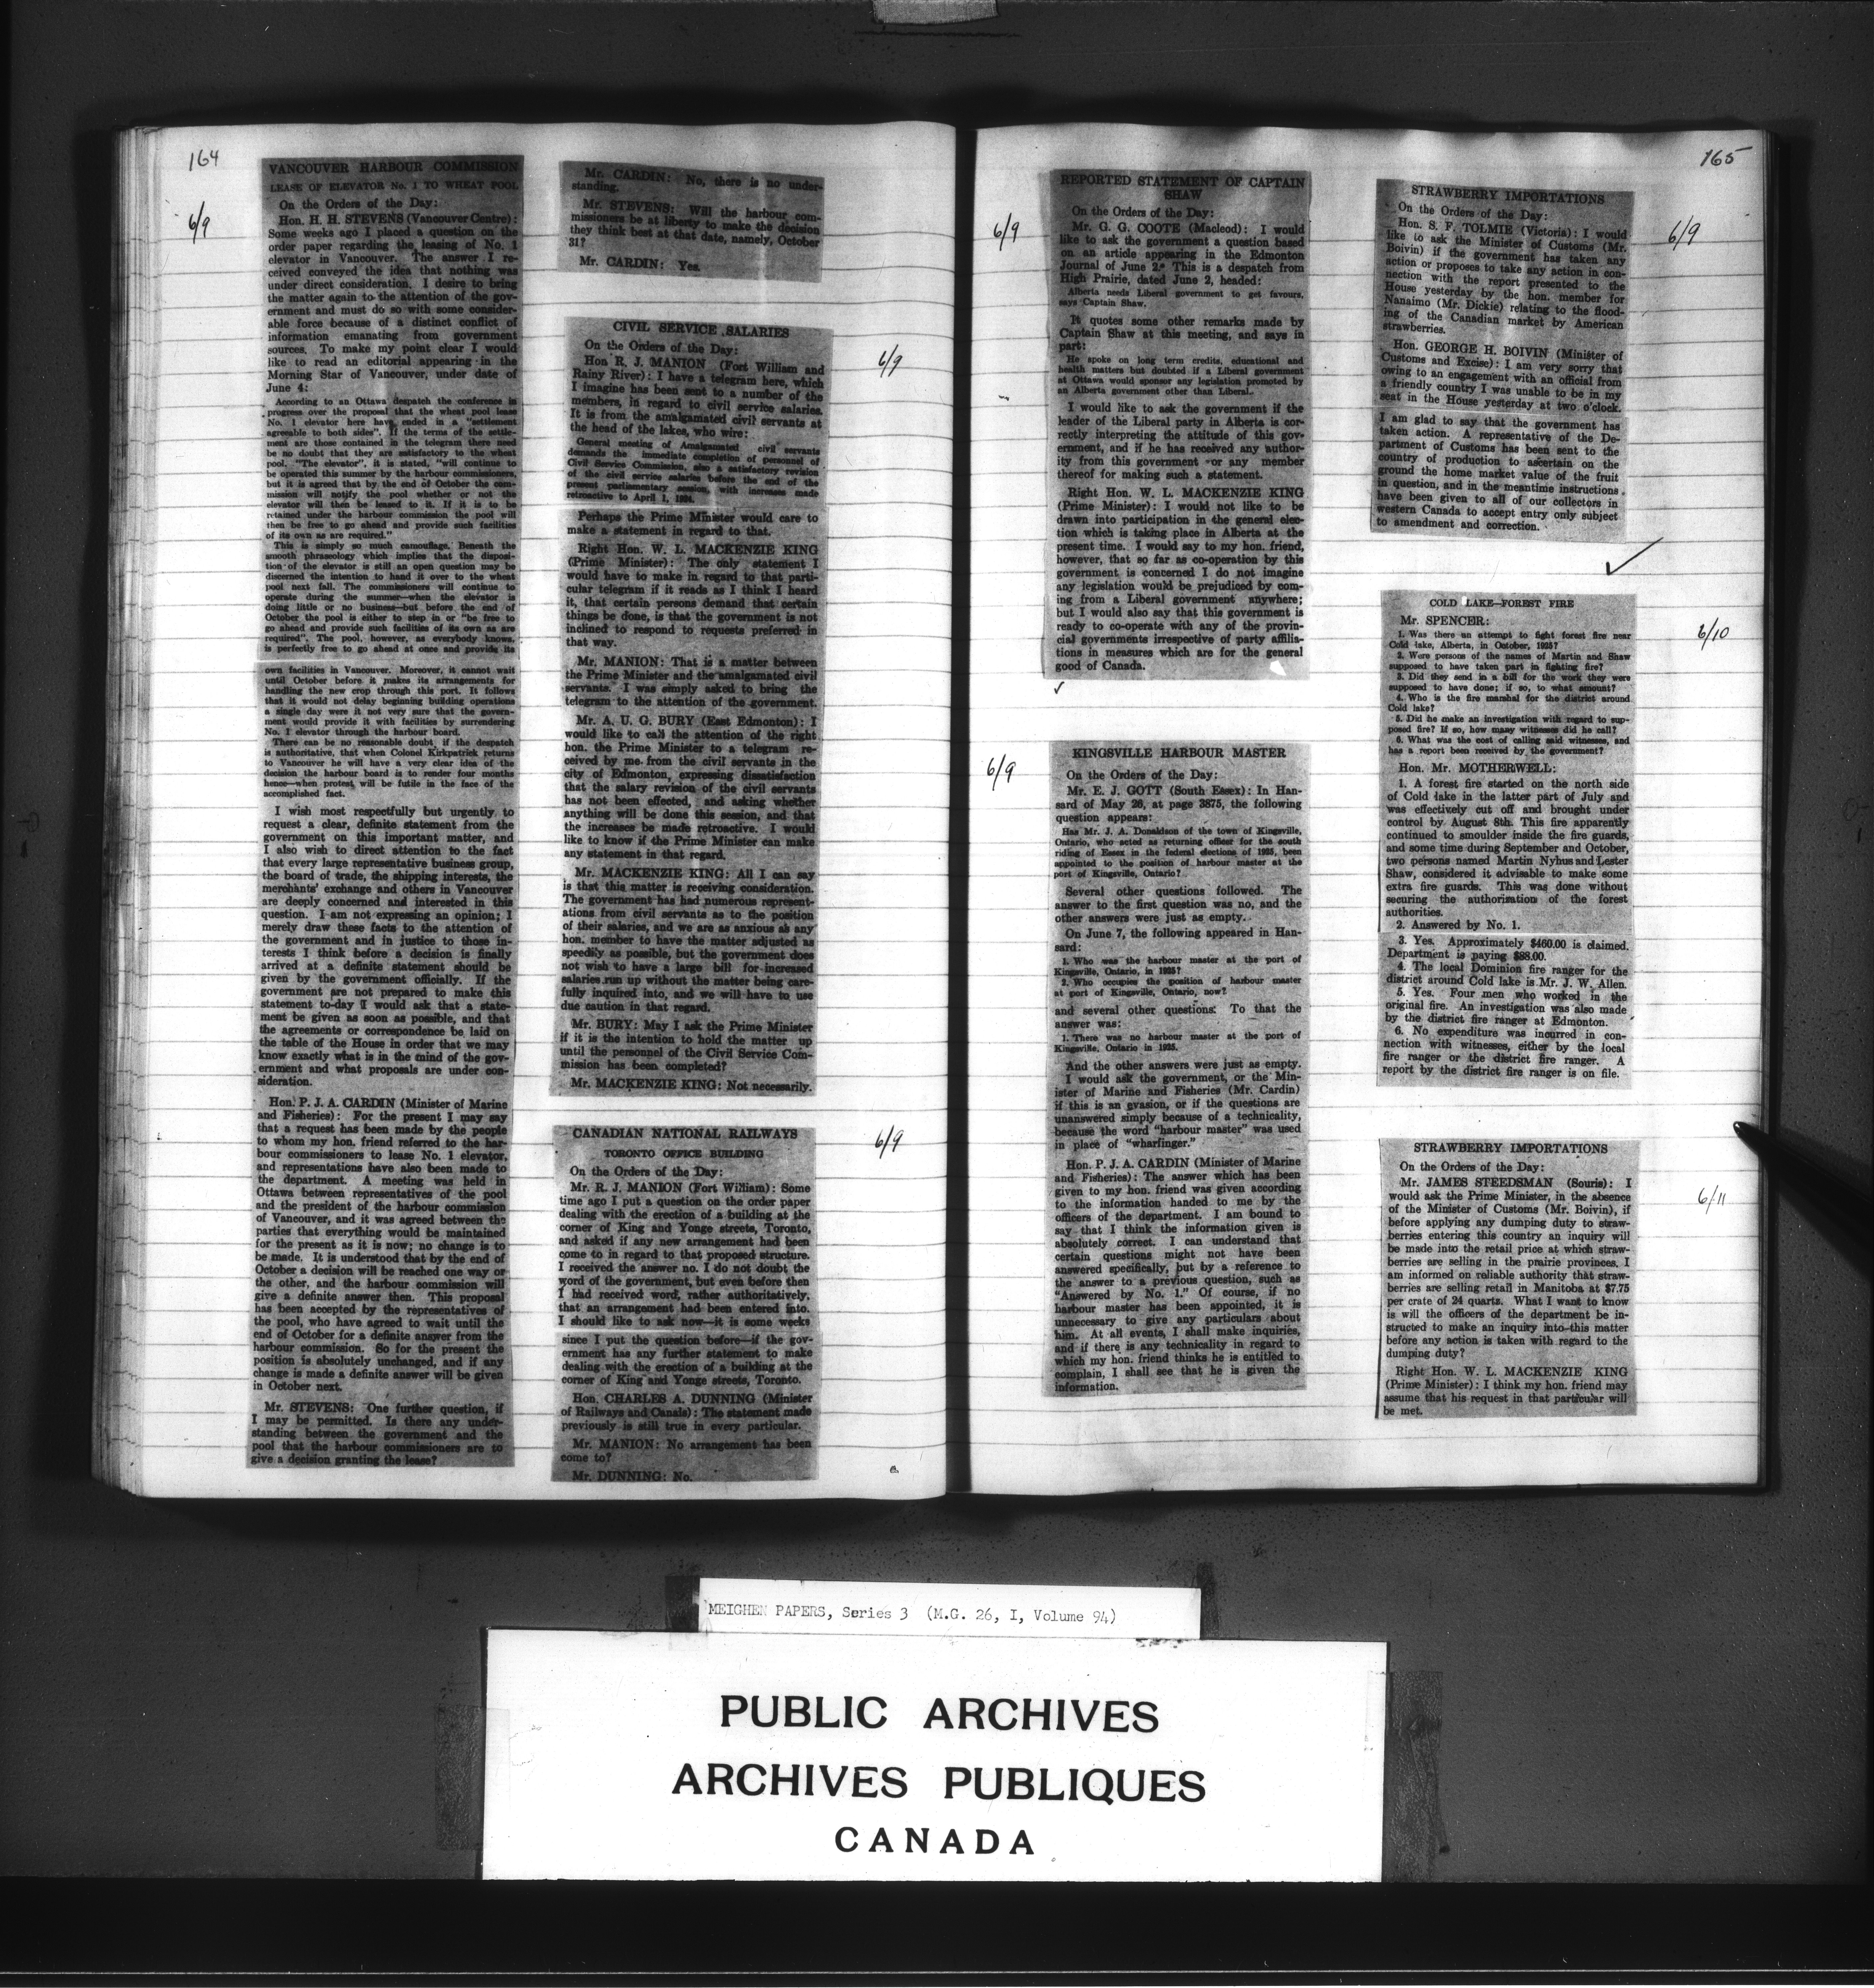 164
6/9
VANCOUVER HARBOUR COMMISSION
LEASE OF ELEVATOR No. 1 TO WHEAT POOL
On the Orders of the Day:
Hon. H. H. STEVENS (Vancouver Centre):
Some weeks ago I placed a question on the
order paper regarding the leasing of No. 1
elevator in Vancouver. The answer I re-
ceived conveyed the idea that nothing was
under direct consideration. I desire to bring
the matter again to the attention of the gov-
ernment and must do so with some consider-
able force because of a distinct conflict of
information emanating from government
sources. To make my point clear I would
like to read an editorial appearing in the
Morning Star of Vancouver, under date of
June 4:
According to an Ottawa despatch the conference in
progress over the proposal that the wheat pool lease
No. 1 elevator here have ended in a "settlement
agreeable to both sides". If the terms of the settle-
ment are those contained in the telegram there need
be no doubt that they are satisfactory to the wheat
pool. "The elevator", it is stated, "will continue to
be operated this summer by the harbour commissioners,
but it is agreed that by the end of October the com-
mission will notify the pool whether or not the
elevator will then be leased to it. If it is to be
retained under the harbour commission the pool will
then be free to go ahead and provide such facilities
of its own as are required."
This is simply so much camouflage. Beneath the
smooth phraseology which implies that the disposi-
tion of the elevator is still an open question may be
discerned the intention to hand it over to the wheat
pool next fall. The commissioners will continue to
operate during the summer—when the elevator is
doing little or no business—but before the end of
October the pool is either to step in or "be free to
go ahead and provide such facilities of its own as are
required". The pool, however, as everybody knows,
is perfectly free to go ahead at once and provide its
own facilities in Vancouver. Moreover, it cannot wait
until October before it makes its arrangements for
handling the new crop through this port. It follows
that it would not delay beginning building operations
a single day were it not very sure that the govern-
ment would provide it with facilities by surrendering
No. 1 elevator through the harbour board.
There can be no reasonable doubt, if the despatch
is authoritative, that when Colonel Kirkpatrick returns
to Vancouver he will have a very clear idea of the
decision the harbour board is to render four months
hence—when protest will be futile in the face of the
accomplished fact.
I wish most respectfully but urgently to
request a clear, definite statement from the
government on this important matter, and
I also wish to direct attention to the fact
that every large representative business group,
the board of trade, the shipping interests, the
merchants' exchange and others in Vancouver
are deeply concerned and interested in this
question. I am not expressing an opinion; I
merely draw these facts to the attention of
the government and in justice to those in-
terests I think before a decision is finally
arrived at a definite statement should be
given by the government officially. If the
government are not prepared to make this
statement to-day I would ask that a state-
ment be given as soon as possible, and that
the agreements or correspondence be laid on
the table of the House in order that we may
know exactly what is in the mind of the gov-
ernment and what proposals are under con-
sideration.
Hon. P. J. A. CARDIN (Minister of Marine
and Fisheries): For the present I may say
that a request has been made by the people
to whom my hon. friend referred to the har-
bour commissioners to lease No. 1 elevator,
and representations have also been made to
the department. A meeting was held in
Ottawa between representatives of the pool
and the president of the harbour commission
of Vancouver, and it was agreed between the
parties that everything would be maintained
for the present as it is now; no change is to
be made. It is understood that by the end of
October a decision will be reached one way or
the other, and the harbour commission will
give a definite answer then. This proposal
has been accepted by the representatives of
the pool, who have agreed to wait until the
end of October for a definite answer from the
harbour commission. So for the present the
position is absolutely unchanged, and if any
change is made a definite answer will be given
in October next.
Mr. STEVENS: One further question, if
I may be permitted. Is there any under-
standing between the government and the
pool that the harbour commissioners are to
give a decision granting the lease?
Mr. CARDIN: No, there is no under-
standing.
Mr. STEVENS: Will the harbour com-
missioners be at liberty to make the decision
they think best at that date, namely, October
31?
Mr. CARDIN: Yes.
6/9
CIVIL SERVICE SALARIES
On the Orders of the Day:
Hon. R. J. MANION (Fort William and
Rainy River): I have a telegram here, which
I imagine has been sent to a number of the
members, in regard to civil service salaries.
It is from the amalgamated civil servants at
the head of the lakes, who wire:
General meeting of Amalgamated civil servants
demands the immediate completion of personnel of
Civil Service Commission, also a satisfactory revision
of the civil service salaries before the end of the
present parliamentary session, with increases made
retroactive to April 1, 1924.
Perhaps the Prime Minister would care to
make a statement in regard to that.
Right Hon. W. L. MACKENZIE KING
(Prime Minister): The only statement I
would have to make in regard to that parti-
cular telegram if it reads as I think I heard
it, that certain persons demand that certain
things be done, is that the government is not
inclined to respond to requests preferred in
that way.
Mr. MANION: That is a matter between
the Prime Minister and the amalgamated civil
servants. I was simply asked to bring the
telegram to the attention of the government.
Mr. A. U. G. BURY (East Edmonton): I
would like to call the attention of the right
hon. the Prime Minister to a telegram re-
ceived by me from the civil servants in the
city of Edmonton, expressing dissatisfaction
that the salary revision of the civil servants
has not been effected, and asking whether
anything will be done this session, and that
the increases be made retroactive. I would
like to know if the Prime Minister can make
any statement in that regard.
Mr. MACKENZIE KING: All I can say
is that this matter is receiving consideration.
The government has had numerous represent-
ations from civil servants as to the position
of their salaries, and we are as anxious as any
hon. member to have the matter adjusted as
speedily as possible, but the government does
not wish to have a large bill for increased
salaries run up without the matter being care-
fully inquired into, and we will have to use
due caution in that regard.
Mr. BURY: May I ask the Prime Minister
if it is the intention to hold the matter up
until the personnel of the Civil Service Com-
mission has been completed?
Mr. MACKENZIE KING: Not necessarily.
6/9
CANADIAN NATIONAL RAILWAYS
TORONTO OFFICE BUILDING
On the Orders of the Day:
Mr. R. J. MANION (Fort William): Some
time ago I put a question on the order paper
dealing with the erection of a building at the
corner of King and Yonge streets, Toronto,
and asked if any new arrangement had been
come to in regard to that proposed structure.
I received the answer no. I do not doubt the
word of the government, but even before then
I had received word, rather authoritatively,
that an arrangement had been entered into.
I should like to ask now—it is some weeks
since I put the question before—if the gov-
ernment has any further statement to make
dealing with the erection of a building at the
corner of King and Yonge streets, Toronto.
Hon. CHARLES A. DUNNING (Minister
of Railways and Canals): The statement made
previously is still true in every particular.
Mr. MANION: No arrangement has been
come to?
Mr. DUNNING: No.
165
6/9
REPORTED STATEMENT OF CAPTAIN
SHAW
On the Orders of the Day:
Mr. G. G. COOTE (Macleod): I would
like to ask the government a question based
on an article appearing in the Edmonton
Journal of June 2. This is a despatch from
High Prairie, dated June 2, headed:
Alberta needs Liberal government to get favours,
says Captain Shaw.
It quotes some other remarks made by
Captain Shaw at this meeting, and says in
part:
He spoke on long term credits, educational and
health matters but doubted if a Liberal government
at Ottawa would sponsor any legislation promoted by
an Alberta government other than Liberal.
I would like to ask the government if the
leader of the Liberal party in Alberta is cor-
rectly interpreting the attitude of this gov-
ernment, and if he has received any author-
ity from this government or any member
thereof for making such a statement.
Right Hon. W. L. MACKENZIE KING
(Prime Minister): I would not like to be
drawn into participation in the general elec-
tion which is taking place in Alberta at the
present time. I would say to my hon. friend,
however, that so far as co-operation by this
government is concerned I do not imagine
any legislation would be prejudiced by com-
ing from a Liberal government anywhere;
but I would also say that this government is
ready to co-operate with any of the provin-
cial governments irrespective of party affilia-
tions in measures which are for the general
good of Canada.
6/9
KINGSVILLE HARBOUR MASTER
On the Orders of the Day:
Mr. E. J. GOTT (South Essex): In Han-
sard of May 26, at page 3875, the following
question appears:
Has Mr. J. A. Donaldson of the town of Kingsville,
Ontario, who acted as returning officer for the south
riding of Essex in the federal elections of 1925, been
appointed to the position of harbour master at the
port of Kingsville, Ontario?
Several other questions followed. The
answer to the first question was no, and the
other answers were just as empty.
On June 7, the following appeared in Han-
sard:
1. Who was the harbour master at the port of
Kingsville, Ontario, in 1925?
2. Who occupies the position of harbour master
at port of Kingsville, Ontario, now?
and several other questions. To that the
answer was:
1. There was no harbour master at the port of
Kingsville, Ontario in 1925.
And the other answers were just as empty.
I would ask the government, or the Min-
ister of Marine and Fisheries (Mr. Cardin)
if this is an evasion, or if the questions are
unanswered simply because of a technicality,
because the word "harbour master" was used
in place of "wharfinger."
Hon. P. J. A. CARDIN (Minister of Marine
and Fisheries): The answer which has been
given to my hon. friend was given according
to the information handed to me by the
officers of the department. I am bound to
say that I think the information given is
absolutely correct. I can understand that
certain questions might not have been
answered specifically, but by a reference to
the answer to a previous question, such as
"Answered by No. 1." Of course, if no
harbour master has been appointed, it is
unnecessary to give any particulars about
him. At all events, I shall make inquiries,
and if there is any technicality in regard to
which my hon. friend thinks he is entitled to
complain, I shall see that he is given the
information.
6/9
STRAWBERRY IMPORTATIONS
On the Orders of the Day:
Hon. S. F. TOLMIE (Victoria): I would
like to ask the Minister of Customs (Mr.
Boivin) if the government has taken any
action or proposes to take any action in con-
nection with the report presented to the
House yesterday by the hon. member for
Nanaimo (Mr. Dickie) relating to the flood-
ing of the Canadian market by American
strawberries.
Hon. GEORGE H. BOIVIN (Minister of
Customs and Excise): I am very sorry that
owing to an engagement with an official from
a friendly country I was unable to be in my
seat in the House yesterday at two o'clock.
I am glad to say that the government has
taken action. A representative of the De-
partment of Customs has been sent to the
country of production to ascertain on the
ground the home market value of the fruit
in question, and in the meantime instructions
have been given to all of our collectors in
western Canada to accept entry only subject
to amendment and correction.
6/10
COLD LAKE—FOREST FIRE
Mr. SPENCER:
1. Was there an attempt to fight forest fire near
Cold lake, Alberta, in October, 1925?
2. Were persons of the names of Martin and Shaw
supposed to have taken part in fighting fire?
3. Did they send in a bill for the work they were
supposed to have done; if so, to what amount?
4. Who is the fire marshal for the district around
Cold lake?
5. Did he make an investigation with regard to sup-
posed fire? If so, how many witnesses did he call?
6. What was the cost of calling said witnesses, and
has a report been received by the government?
Hon. Mr. MOTHERWELL:
1. A forest fire started on the north side
of Cold lake in the latter part of July and
was effectively cut off and brought under
control by August 8th. This fire apparently
continued to smoulder inside the fire guards,
and some time during September and October,
two persons named Martin Nyhus and Lester
Shaw, considered it advisable to make some
extra fire guards. This was done without
securing the authorization of the forest
authorities.
2. Answered by No. 1.
3. Yes. Approximately $460.00 is claimed.
Department is paying $88.00.
4. The local Dominion fire ranger for the
district around Cold lake is Mr. J. W. Allen.
5. Yes. Four men who worked in the
original fire. An investigation was also made
by the district fire ranger at Edmonton.
6. No expenditure was incurred in con-
nection with witnesses, either by the local
fire ranger or the district fire ranger. A
report by the district fire ranger is on file.
6/11
STRAWBERRY IMPORTATIONS
On the Orders of the Day:
Mr. JAMES STEEDSMAN (Souris): I
would ask the Prime Minister, in the absence
of the Minister of Customs (Mr. Boivin), if
before applying any dumping duty to straw-
berries entering this country an inquiry will
be made into the retail price at which straw-
berries are selling in the prairie provinces. I
am informed on reliable authority that straw-
berries are selling retail in Manitoba at $7.75
per crate of 24 quarts. What I want to know
is will the officers of the department be in-
structed to make an inquiry into this matter
before any action is taken with regard to the
dumping duty?
Right Hon. W. L. MACKENZIE KING
(Prime Minister): I think my hon. friend may
assume that his request in that particular will
be met.
MEIGHEN PAPERS, Series 3 (M.G. 26, I, Volume 94)
PUBLIC ARCHIVES
ARCHIVES PUBLIQUES
CANADA